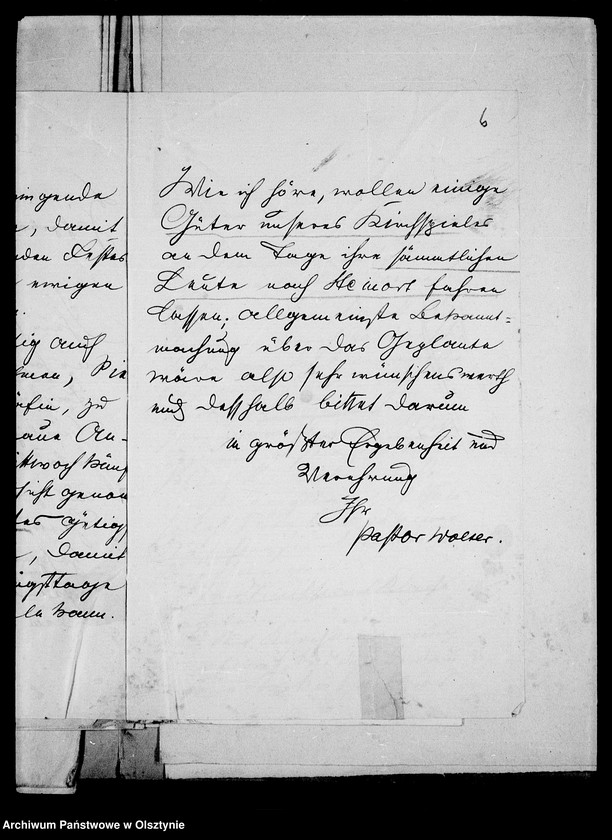 6
Wie ich höre, wollen einige
Güter unseres Kirchspieles
an dem Tage ihre sämmtlichen
Leute nach Steinort fahren
lassen; allgemeinste Bekannt=
machung über das Geplante
wäre also sehr wünschenswerth
und desshalb bittet darum
in größter Ergebenheit und
Verehrung
Ihr
Pastor Wolter.
damit
Festes
ewigen
auf
zu
An-
genau
gütigst
damit
kann.
Archiwum Państwowe w Olsztynie